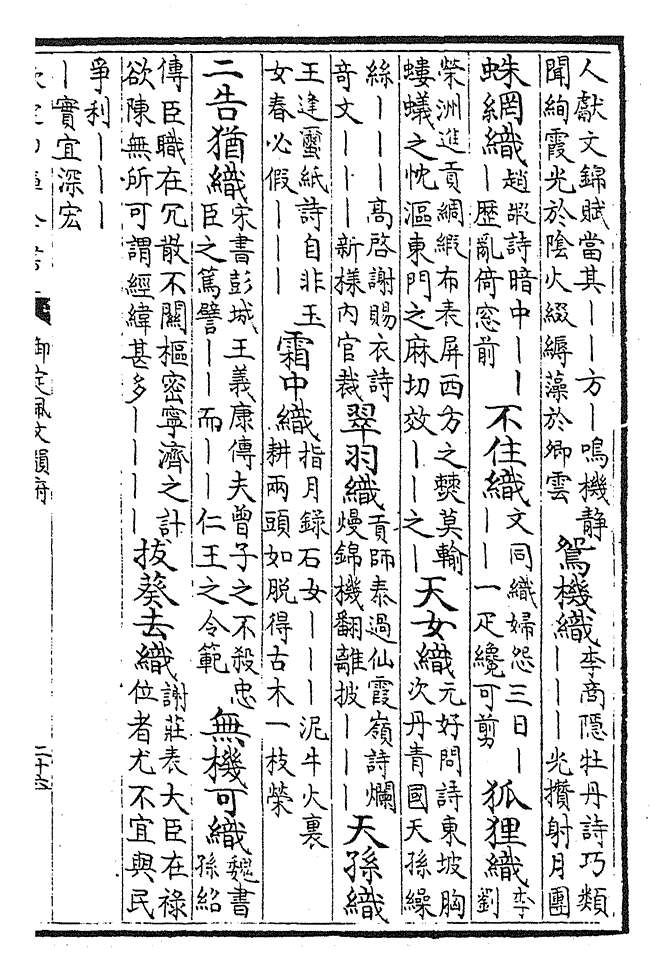 人獻文錦賦當其——方—鳴機静
聞絢霞光於陰火綴縟藻於卿雲
鴛機織
李商隱牡丹詩巧類
———光攢射月團
蛛網織
趙嘏詩暗中——
—歷亂倚窓前
不住織
文同織婦怨三日—
——一疋纔可剪
狐狸織
李
劉
榮洲進貢綢緞布表屏西方之㸑莫輸
螻蟻之忱漚東門之麻切效——之—
天女織
元好問詩東坡胸
次丹青國天孫繰
絲———高啓謝賜衣詩
奇文———新樣内官裁
翠羽織
貢師泰過仙霞嶺詩爛
熳錦機翻離披———
天孫織
王逢璽紙詩自非玉
女春必假———
霜中織
指月錄石女———泥牛火裏
耕兩頭如脫得古木一枝榮
二告猶織
宋書彭城王義康傳夫曾子之不殺忠
臣之篤譬——而——仁王之令範
無機可織
魏書
孫紹
傳臣職在冗散不關樞密寧濟之計
欲陳無所可謂經緯甚多————
拔葵去織
謝莊表大臣在禄
位者尤不宜與民
爭利———
—實宜深宏
御定佩文韻府
二十六